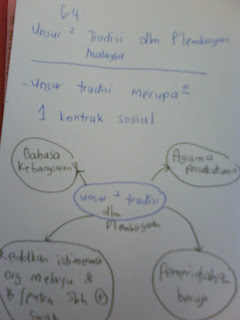 64
Unsur² Tradisi dlm Plembagaan
Malaysia
- Unsur tradisi merupaⁿ
1 kontrak sosial
Bahasa
Kebangsaan
Agama
Persekutuan
Unsur² tradisi
dlm
Plembagaan
Kedudkan istimewa
org melayu &
B/putra Sbh +
Swak
beraja